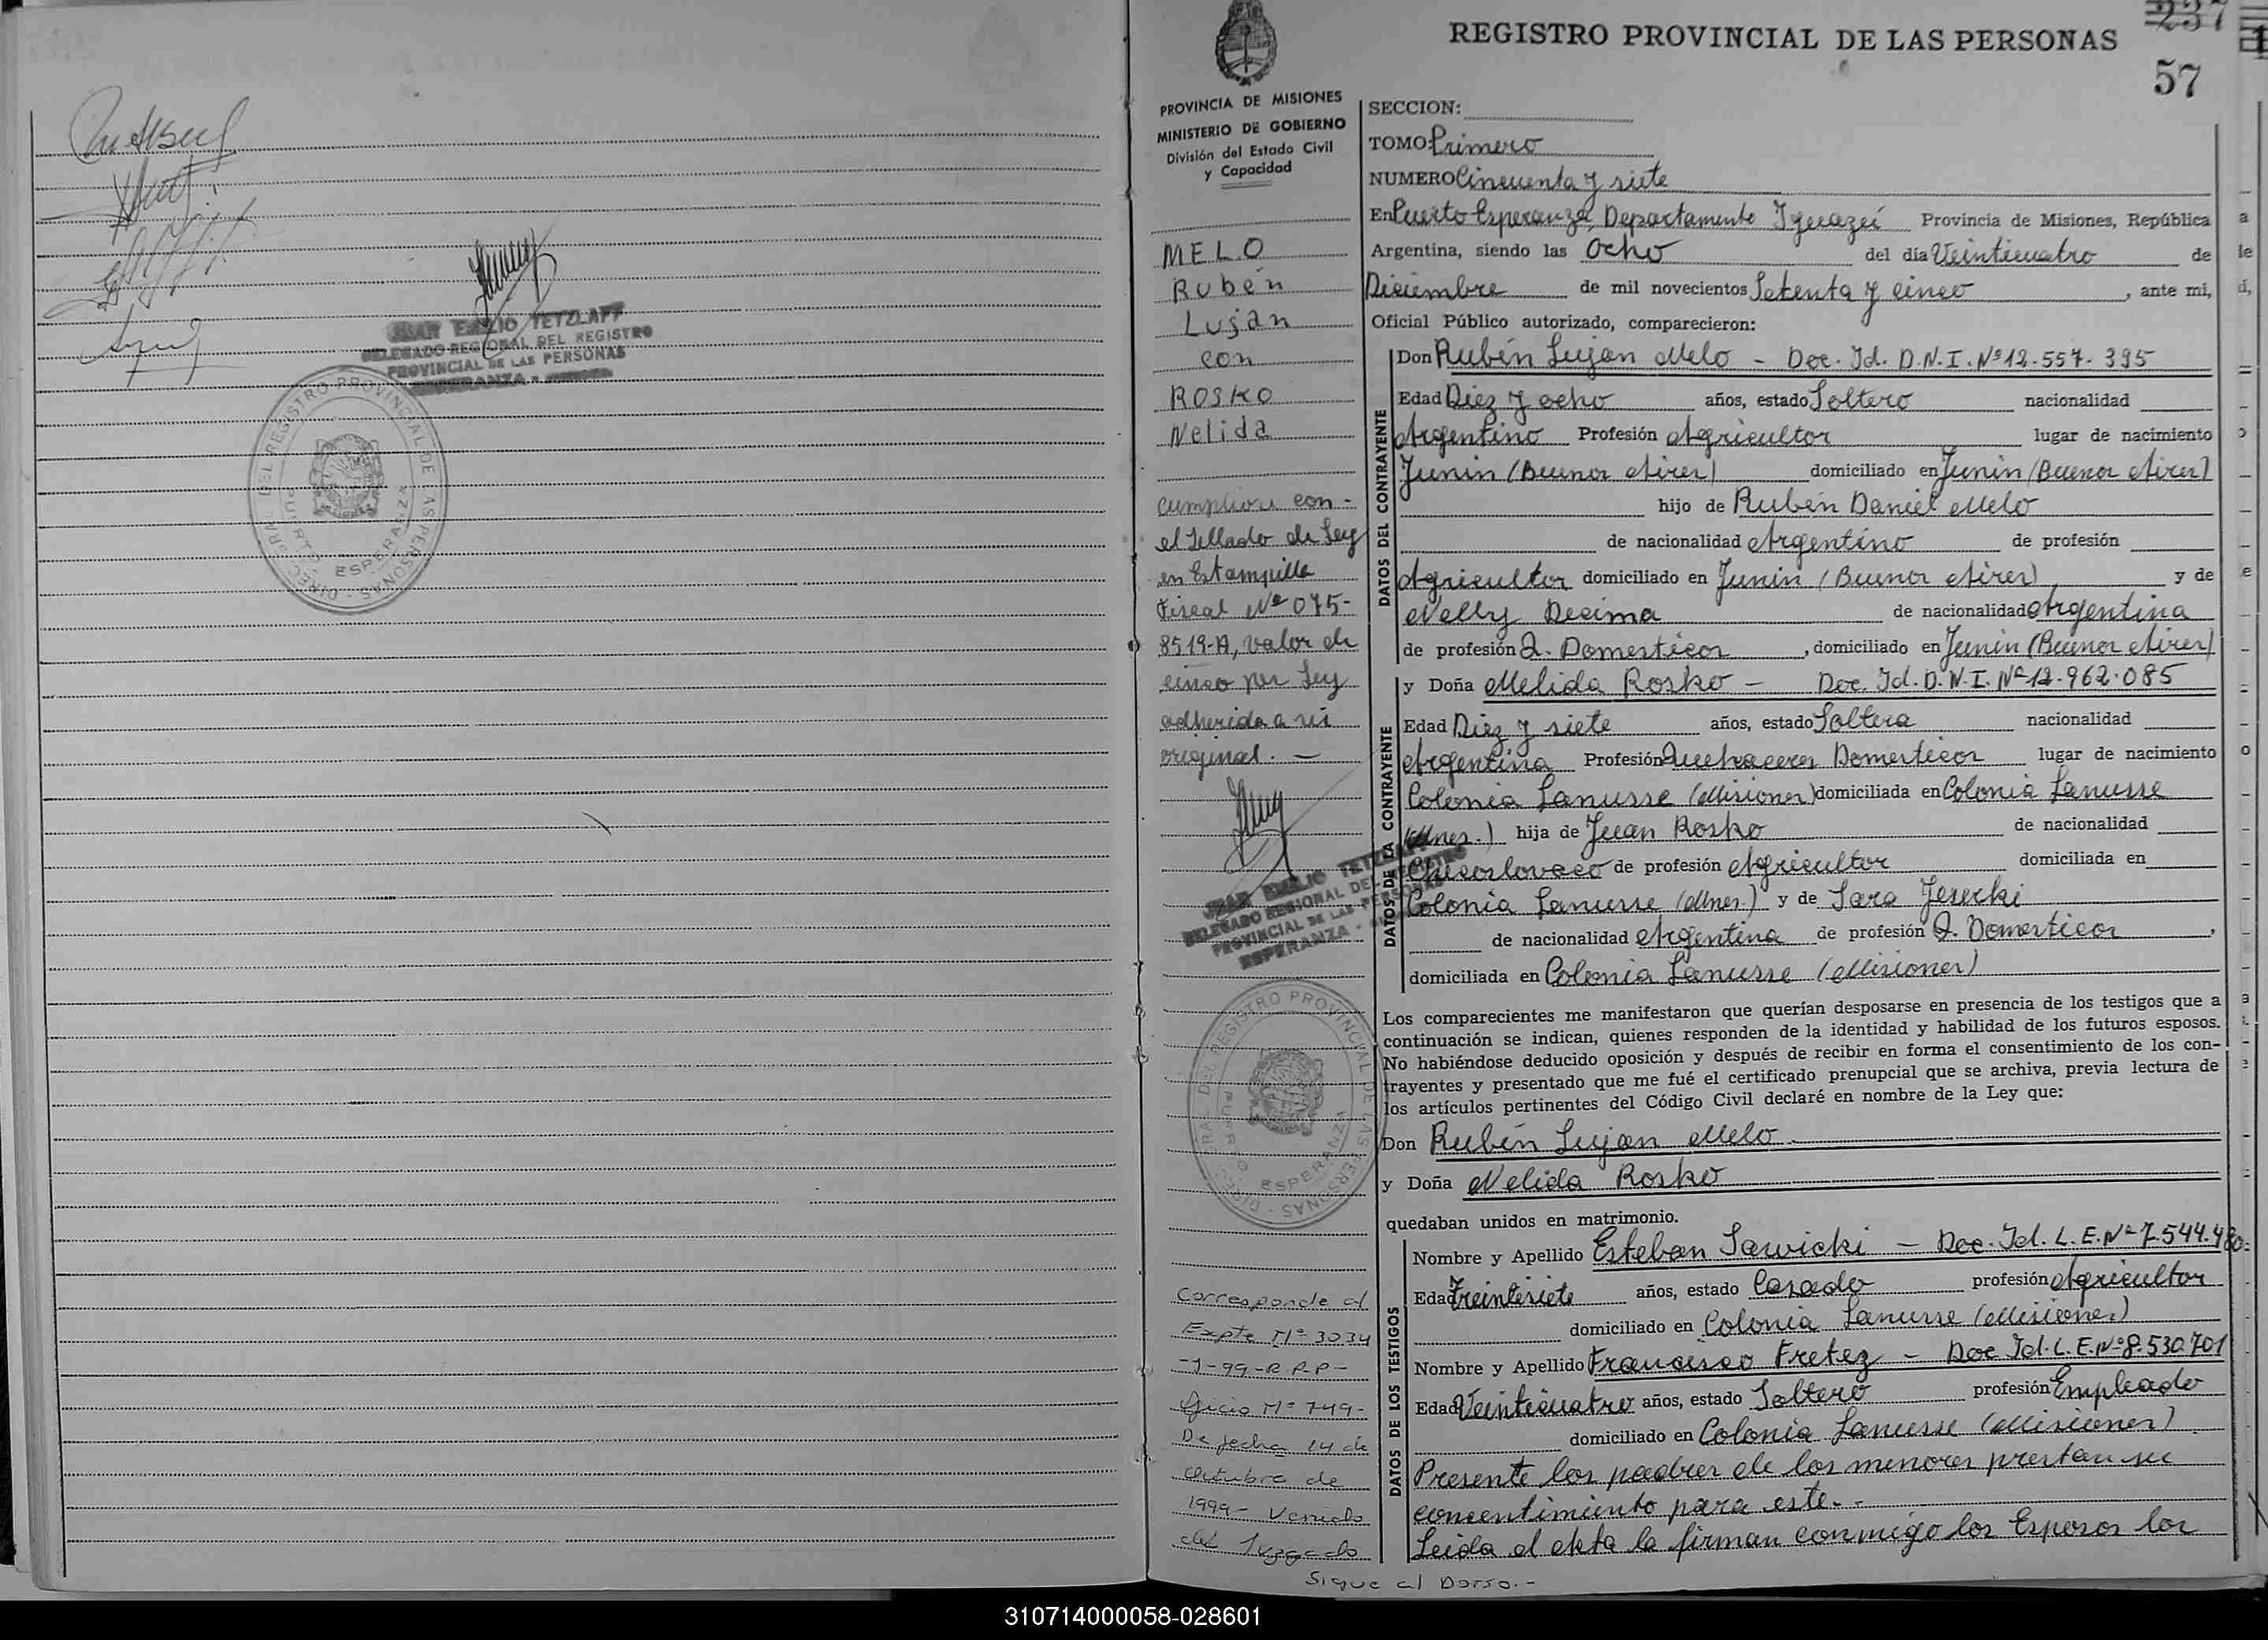 JUAN EMILIO TETZLAFF
DELEGADO REGIONAL DEL REGISTRO
PROVINCIAL DE LAS PERSONAS
ESPERANZA - MISIONES
DIREC. GRAL. DEL REGISTRO PROVINCIAL DE LAS PERSONAS
PUERTO ESPERANZA
REGISTRO PROVINCIAL DE LAS PERSONAS
237
57
PROVINCIA DE MISIONES
MINISTERIO DE GOBIERNO
División del Estado Civil
y Capacidad
MELO
Rubén
Luján
con
ROSKO
Nelida
cumpliose con -
el Sellado de Ley
en Estampilla
Fiscal Nº 075-
8519-A, valor de
cinco por Ley
adherida a su
original. —
JUAN EMILIO TETZLAFF
DELEGADO REGIONAL DEL REGISTRO
PROVINCIAL DE LAS PERSONAS
ESPERANZA -
DIREC. GRAL. DEL REGISTRO PROVINCIAL DE LAS PERSONAS
PUERTO ESPERANZA
Corresponde al
Expte Nº 3034
-J-99-R.P.P-
Oficio Nº 749-
De fecha 14 de
Octubre de
1999- Venido
del Juzgado
SECCION:
TOMO: Primero
NUMERO Cincuenta y siete
En Puerto Esperanza, Departamento Iguazú Provincia de Misiones, República
Argentina, siendo las Ocho del día Veinticuatro de
Diciembre de mil novecientos Setenta y cinco, ante mi,
Oficial Público autorizado, comparecieron:
DATOS DEL CONTRAYENTE
Don Rubén Lujan Melo - Doc. Id. D.N.I. Nº 12.557.395
Edad Diez y ocho años, estado Soltero nacionalidad
Argentino Profesión Agricultor lugar de nacimiento
Junín (Buenos Aires) domiciliado en Junín (Buenos Aires)
hijo de Rubén Daniel Melo
de nacionalidad Argentino de profesión
Agricultor domiciliado en Junín (Buenos Aires) y de
Nelly Decima de nacionalidad Argentina
de profesión Q. Domesticos, domiciliado en Junín (Buenos Aires)
DATOS DE LA CONTRAYENTE
y Doña Melida Rosko - Doc. Id. D.N.I. Nº 12.962.085
Edad Diez y siete años, estado Soltera nacionalidad
Argentina Profesión Quehaceres Domesticos lugar de nacimiento
Colonia Lanusse (Misiones) domiciliada en Colonia Lanusse
(Mnes.) hija de Juan Rosko de nacionalidad
Checoslovaco de profesión Agricultor domiciliada en
Colonia Lanusse (Mnes.) y de Sara Jesecki
de nacionalidad Argentina de profesión Q. Domesticos,
domiciliada en Colonia Lanusse (Misiones)
Los comparecientes me manifestaron que querían desposarse en presencia de los testigos que a
continuación se indican, quienes responden de la identidad y habilidad de los futuros esposos.
No habiéndose deducido oposición y después de recibir en forma el consentimiento de los con-
trayentes y presentado que me fué el certificado prenupcial que se archiva, previa lectura de
los artículos pertinentes del Código Civil declaré en nombre de la Ley que:
Don Rubén Lujan Melo
y Doña Nelida Rosko
quedaban unidos en matrimonio.
DATOS DE LOS TESTIGOS
Nombre y Apellido Esteban Sawicki - Doc. Id. L.E. Nº 7.544.480.
Edad Treintisiete años, estado Casado profesión Agricultor
domiciliado en Colonia Lanusse (Misiones)
Nombre y Apellido Francisco Fretez - Doc Id. L.E. Nº 8.530.701
Edad Veinticuatro años, estado Soltero profesión Empleado
domiciliado en Colonia Lanusse (Misiones)
Presente los padres de los menores prestan su
concentimiento para este.-
Leida el Acta la firman conmigo los Esposos los
Sigue al Dorso.-
310714000058-028601